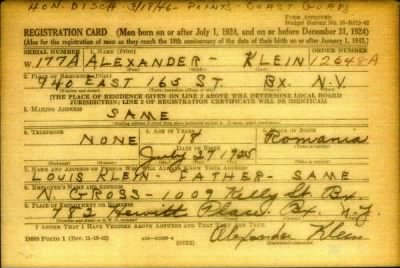 HON-DISCH 3/18/46 - POINTS - COAST GUARD
FORM APPROVED
REGISTRATION CARD—(Men born on or after July 1, 1924, and on or before December 31, 1924)
(Also for the registration of men as they reach the 18th anniversary of the date of their birth on or after January 1, 1943.)
SERIAL NUMBER 1. NAME (Print) ORDER NUMBER
W 177A ALEXANDER - KLEIN 12648A
2. PLACE OF RESIDENCE (Print)
940 EAST 165 ST. BX. N.Y.
[THE PLACE OF RESIDENCE GIVEN ON LINE 2 ABOVE WILL DETERMINE LOCAL BOARD
JURISDICTION; LINE 2 OF REGISTRATION CERTIFICATE WILL BE IDENTICAL]
3. MAILING ADDRESS
SAME
4. TELEPHONE 5. AGE IN YEARS 6. PLACE OF BIRTH
NONE 18 Romania
DATE OF BIRTH
July 29 1925
7. NAME AND ADDRESS OF PERSON WHO WILL ALWAYS KNOW YOUR ADDRESS
LOUIS KLEIN - FATHER - SAME
8. EMPLOYER'S NAME AND ADDRESS
N. GROSS - 1009 Kelly St. Bx.
9. PLACE OF EMPLOYMENT OR BUSINESS
782 Hewitt Place Bx. N.Y.
I AFFIRM THAT I HAVE VERIFIED ABOVE ANSWERS AND THAT THEY ARE TRUE.
DSS FORM 1 (Rev. 11-16-42)
Alexander Klein